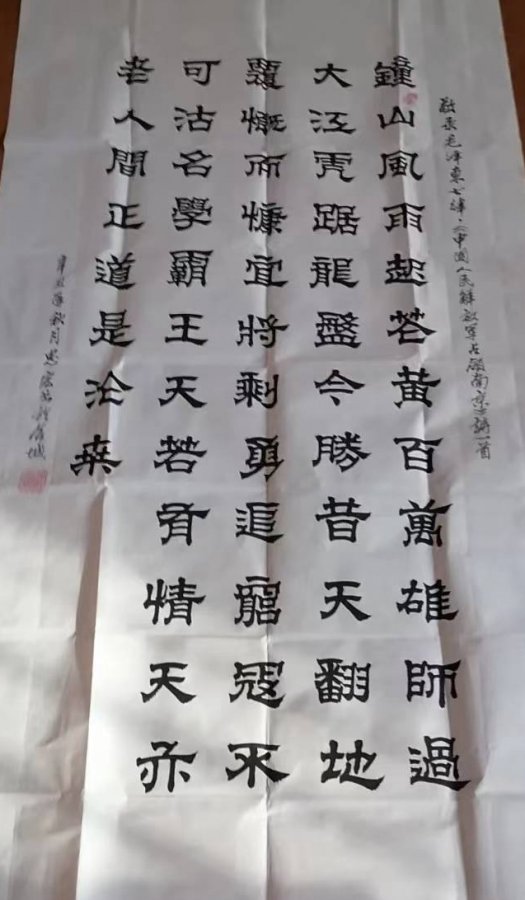 敬录毛泽東七律·《中國人民解放军占领南京》诗一首
鐘山風雨起苍黄百萬雄師過
大江虎踞龍盤今勝昔天翻地
覆慨而慷宜將剩勇追窮寇不
可沽名學霸王天若有情天亦
老人間正道是沧桑
辛丑秋月